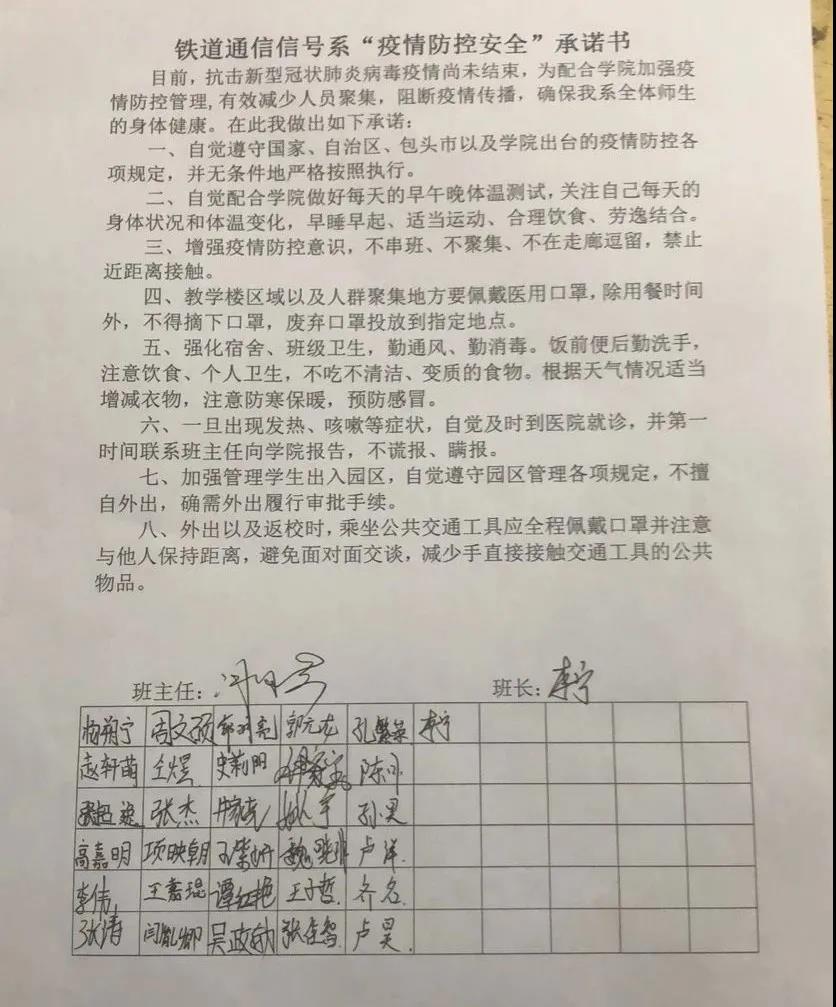 铁道通信信号系“疫情防控安全”承诺书
目前，抗击新型冠状肺炎病毒疫情尚未结束，为配合学院加强疫
情防控管理,有效减少人员聚集，阻断疫情传播，确保我系全体师生
的身体健康。在此我做出如下承诺：
一、自觉遵守国家、自治区、包头市以及学院出台的疫情防控各
项规定，并无条件地严格按照执行。
二、自觉配合学院做好每天的早午晚体温测试，关注自己每天的
身体状况和体温变化，早睡早起、适当运动、合理饮食、劳逸结合。
三、增强疫情防控意识，不串班、不聚集、不在走廊逗留，禁止
近距离接触。
四、教学楼区域以及人群聚集地方要佩戴医用口罩，除用餐时间
外，不得摘下口罩，废弃口罩投放到指定地点。
五、强化宿舍、班级卫生，勤通风、勤消毒。饭前便后勤洗手，
注意饮食、个人卫生，不吃不清洁、变质的食物。根据天气情况适当
增减衣物，注意防寒保暖，预防感冒。
六、一旦出现发热、咳嗽等症状，自觉及时到医院就诊，并第一
时间联系班主任向学院报告，不谎报、瞒报。
七、加强管理学生出入园区，自觉遵守园区管理各项规定，不擅
自外出，确需外出履行审批手续。
八、外出以及返校时，乘坐公共交通工具应全程佩戴口罩并注意
与他人保持距离，避免面对面交谈，减少手直接接触交通工具的公共
物品。
班主任： 班长：李宁
杨朔宁 周文硕 郭元龙 孔繁荣 李宁
赵轩萌 仝煜 史莉阳
张杰 孙昊
高嘉明 项映朝 卢洋
李伟 王嘉琨 谭红艳 王子哲 齐名
张清 闫胤卿 吴政航 张佳智 卢昊